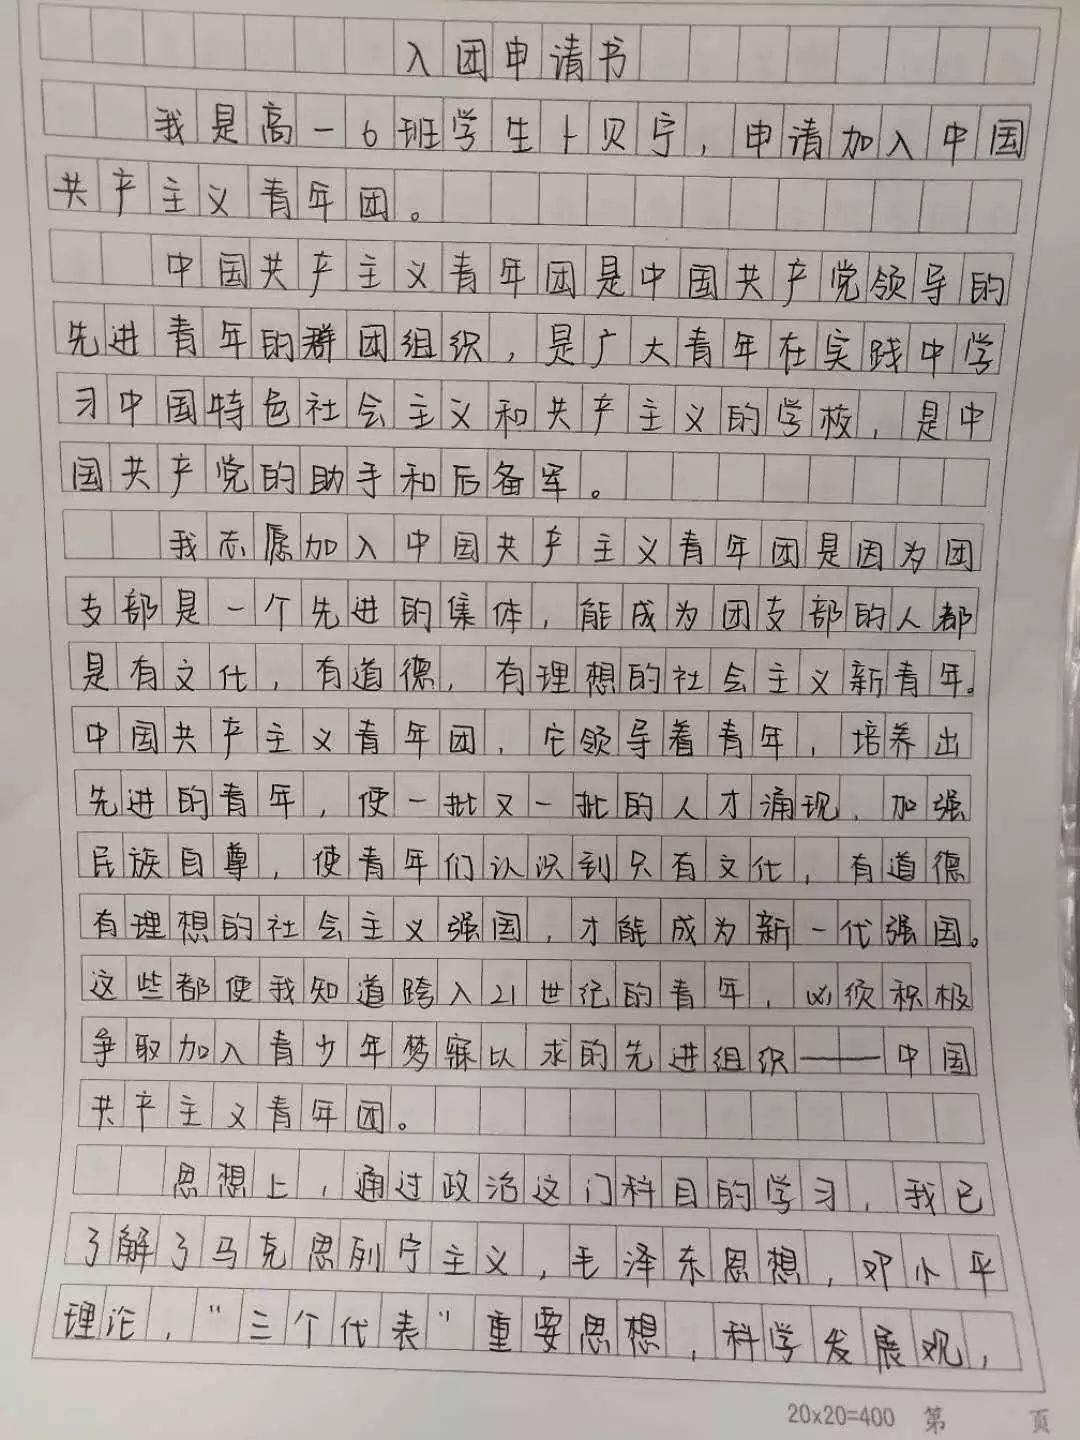 入团申请书
我是高一6班学生卜贝宁,申请加入中国
共产主义青年团。
中国共产主义青年团是中国共产党领导的
先进青年的群团组织,是广大青年在实践中学
习中国特色社会主义和共产主义的学校,是中
国共产党的助手和后备军。
我志愿加入中国共产主义青年团是因为团
支部是一个先进的集体,能成为团支部的人都
是有文化,有道德,有理想的社会主义新青年。
中国共产主义青年团,它领导着青年,培养出
先进的青年,使一批又一批的人才涌现、加强
民族自尊,使青年们认识到只有文化,有道德
有理想的社会主义强国,才能成为新一代强国。
这些都使我知道跨入21世纪的青年,必须积极
争取加入青少年梦寐以求的先进组织——中国
共产主义青年团。
思想上,通过政治这门科目的学习,我已
了解了马克思列宁主义,毛泽东思想,邓小平
理论,“三个代表”重要思想,科学发展观,
20x20=400 第 页